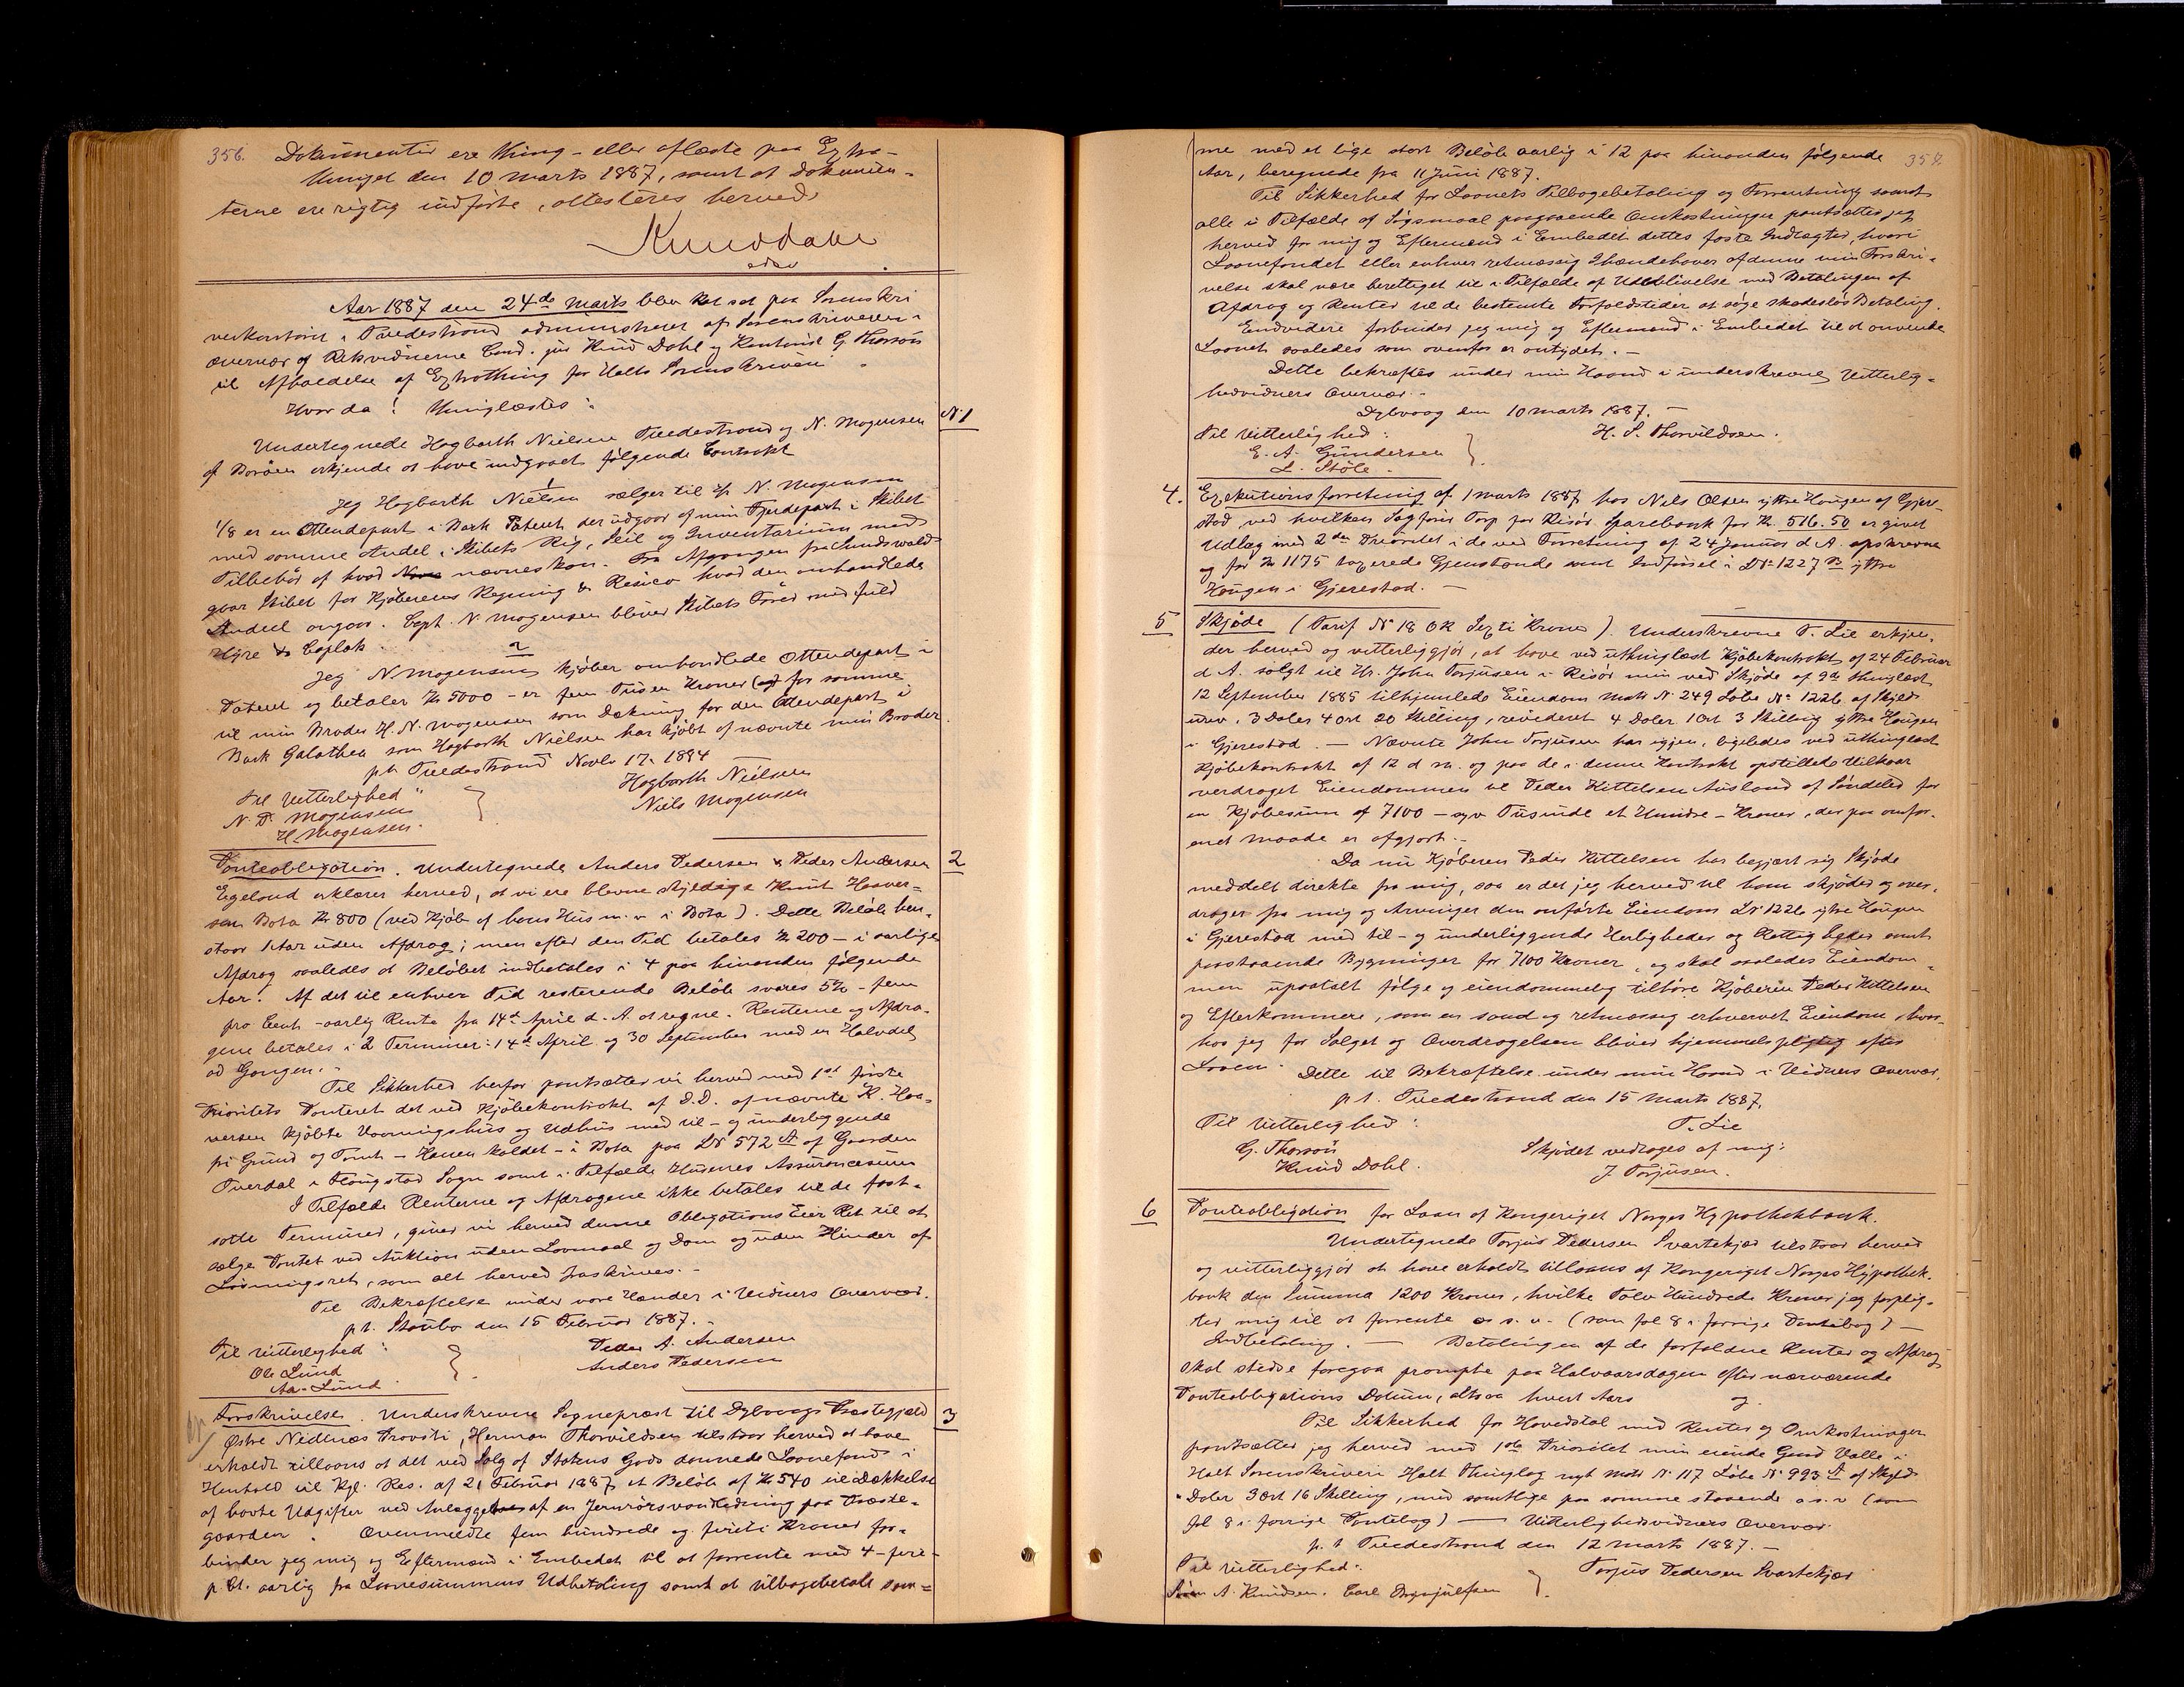 356. Dokumenter ere thing- eller aflæste paa Extra-
thinget den 10 Marts 1887, samt at Dokumen-
terne ere rigtig indførte, attesteres herved
Knud Dahl
edsv
Aar 1887 den 24de Marts blev Ret sat paa Sorenskri
verkontoret i Tvedestrand administreret af Sorenskriveren i
overvær af Retsvidnerne Cand. jur Knud Dahl og Kontorist G. Thorsøn
til Afholdelse af Extrathing for Holts Sorenskriveri
Hvor da: Thinglæstes:
N 1
Undertegnede Hagbarth Nielsen Tvedestrand og N. Mogensen
af Borøen erkjende at have indgaaet følgende Contrakt
1
Jeg Hagbarth Nielsen sælger til Hr N. Mogensen
1/8 er en Ottendepart i Bark Patent der udgaar af min Fjerdepart i Skibet
med samme Andel i Skibets Rig, Seil og Inventarium med
Tilbehør af hvad nævnes kan. Fra Afgangen fra Sundswald
gaar Skibet for Kjøberens Regning & Resico hvad den omhandlede
Andeel angaar. Capt. N Mogensen bliver Skibets Fører med fuld
Hyre & Caplak.
2
Jeg N Mogensen kjøber omhandlede Ottendepart i
Patent og betaler Kr 5000 - er fem Tusen Kroner (og) for samme
til min Broder H. N. Mogensen som Dækning for den Ottendepart i
Bark Galathea som Hagbarth Nielsen har kjøbt af nævnte min Broder.
pt Tvedestrand Novbr 17. 1884
Hagbarth Nielsen
Niels Mogensen
Til Vitterlighed
N. P. Mogensen
H. Mogensen.
2
Panteobligation. Undertegnede Anders Pedersen & Peder Andersen
Egeland erklærer herved, at vi ere blevne skyldige Knut Haaver-
sen Bota Kr 800 (ved Kjøb af hans Hus m. v. i Bota). Dette Beløb hen-
staar 1 Aar uden Afdrag; men efter den Tid betales Kr 200 - i aarlige
Afdrag saaledes at Beløbet indbetales i 4 paa hinanden følgende
Aar. Af det til enhver Tid resterende Beløb svares 5% - fem
pro Cent - aarlig Rente fra 14de April d. A. at regne. Renterne og Afdra-
gene betales i 2 Terminer: 14de April og 30 September med en Halvdel
ad Gangen. -
Til Sikkerhed herfor pantsætter vi herved med 1ste første
Prioritets Panteret det ved Kjøbekontrakt af D.D. af nævnte K. Haa-
versen kjøbte Vaaningshus og Udhus med til- og underliggende
fri Grund og Tomt - Haven kaldet - i Bota paa LN 572 A af Gaarden
Tverdal i Flangstad Sogn samt i Tilfælde Husenes Assurancesum
I Tilfælde Renterne og Afdragene ikke betales til de fast-
satte Terminer, giver vi herved denne Obligations Eier Ret til at
sælge Pantet ved Auktion uden Lovmaal og Dom og uden Hinder af
Løsningsret, som alt herved fraskrives. -
Til Bekræftelse under vore Hænder i Vidners Overvær.
pt. Staubo den 15 Februar 1887. -
Peder A. Andersen
Anders Pedersen
Til Vitterlighed:
Ole Lund
Aa. Lund.
3
Forskrivelse. Underskrevne Sognepræst til Dybvaags Præstegjæld
Østre Nedenæs Provsti, Herman Thorvildsen tilstaar herved at have
erholdt tillaans af det ved Salg af Statens Gods dannede Laanefond i
Henhold til Kgl. Res. af 21 Februar 1887 et Beløb af Kr 540 til Dækkelse
af havte Udgifter ved Anlægget af en Jernrørsvandledning paa Præste-
gaarden. Ovenmeldte fem hundrede og firti Kroner for-
binder jeg mig og Eftermænd i Embedet til at forrente med 4 - fire -
p. Ct. aarlig fra Laanesummens Udbetaling samt at tilbagebetale sam-
357.
me med et lige stort Beløb aarlig i 12 paa hinanden følgende
Aar, beregnede fra 11 Juni 1887.
Til Sikkerhed for Laanets Tilbagebetaling og Forrentning samt
alle i Tilfælde af Søgsmaal paagaaende Omkostninger pantsætter jeg
herved for mig og Eftermænd i Embedet dettes faste Indtægter, hvori
Laanefondet eller enhver retmæssig Ihændehaver af denne min Forskri-
velse skal være berettiget til i Tilfælde af Udeblivelse med Betalingen af
Afdrag og Renter til de bestemte Forfaldstider at søge skadesløs Betaling.
Endvidere forbinder jeg mig og Eftermænd i Embedet til at anvende
Laanet saaledes som ovenfor er antydet. -
Dette bekræftes under min Haand i underskrevne Vitterlig-
hedsvidners Overvær. -
Dybvaag den 10 Marts 1887. -
H. S. Thorvildsen.
Til Vitterlighed:
E. A. Gundersen
L. Støle.
4.
Exekutionsforretning af 1 Marts 1887 hos Nils Olsen yttre Haugen af Gjer-
stad, ved hvilken Sagfører Torp for Risør Sparebank for Kr. 516.50 er givet
Udlæg med 2den Prioritet i de ved Forretning af 24 Januar d A. opskrevne
og for Kr 1175 taxerede Gjenstande samt Indførsel i LN 1227 B yttre
Haugen i Gjerestad. -
5
Skjøde (Tarif N 18 OK Sexti Kroner). Underskrevne T. Lie erkjen-
der herved og vitterliggjør, at have ved uthinglæst Kjøbekontrakt af 24 Februar
d. A. solgt til Hr. John Torjusen i Risør min ved Skjøde af 9de thinglæst
12 September 1885 tilhjemlede Eiendom Matr N 249 Løbe N 1226 af Skyld
urev. 3 Daler 4 Ort 20 Skilling, revideret 4 Daler 1 Ort 3 Skilling yttre Haugen
i Gjerestad. - Nævnte John Torjusen har igjen, ligeledes ved uthinglæst
Kjøbekontrakt af 12 d. M. og paa de i denne Kontrakt opstillede Vilkaar
overdraget Eiendommen til Peder Kittelsen Ausland af Søndeled for
en Kjøbesum af 7100 - syv Tusinde et Hundre - Kroner, der paa omfor-
enet Maade er afgjort. -
Da nu Kjøberen Peder Kittelsen har begjært sig Skjøde
meddelt direkte fra mig, saa er det jeg herved til ham skjøder og over-
drager fra mig og Arvinger den anførte Eiendom LN 1226 ytre Haugen
i Gjerestad med til- og underliggende Herligheder og Rettigheder samt
paastaaende Bygninger for 7100 Kroner, og skal saaledes Eiendom-
men upaatalt følge og eiendommelig tilhøre Kjøberen Peder Kittelsen
og Efterkommere, som en sand og retmæssig erhvervet Eiendom, hvor-
hos jeg for Salget og Overdragelsen bliver hjemmelspligtig efter
Loven. Dette til Bekræftelse under min Haand i Vidners Overvær.
pt. Tvedestrand den 15 Marts 1887.
T. Lie
Til Vitterlighed:
G. Thorsøn
Knud Dahl.
Skjødet vedtages af mig:
J. Torjusen.
6
Panteobligation for Laan af Kongeriget Norges Hypothekbank.
Undertegnede Torjus Pedersen Svartekjær tilstaar herved
og vitterliggjør at have erholdt tillaans af Kongeriget Norges Hypothek-
bank den Summa 1200 Kroner, hvilke Tolv Hundrede Kroner jeg forplig-
ter mig til at forrente o. s. v. (som fol 8 i forrige Pantebog) -
Indbetaling. - Betalingen af de forfaldne Renter og Afdrag
skal stedse foregaa prompte paa Halvaarsdagen efter nærværende
Panteobligations Datum, altsaa hvert Aars og
Til Sikkerhed for Hovedstol med Renter og Omkostninger
pantsætter jeg herved med 1ste Prioritet min eiende Gaard Valle i
Holt Sorenskriveri Holt Thinglag nyt Matr N. 117 Løbe N. 993 A af Skyld
" Daler 3 Ort 16 Skilling, med samtlige paa samme staaende o. s. v. (som
fol 8 i forrige Pantebog) - Vitterlighedsvidners Overvær.
p. t Tvedestrand den 12 Marts 1887. -
Torjus Pedersen Svartekjær
Til Vitterlighed:
A. Knudsen. Carl Brynjulfsen